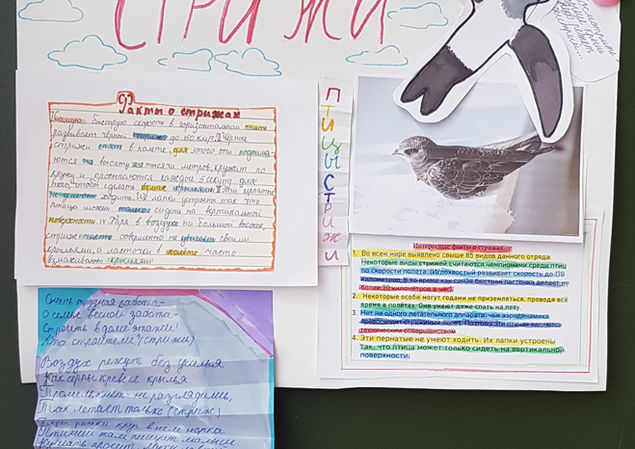 СТРИЖИ
Факты о стрижах
быструю скорость в горизонтальной
развивает чёрный стриж до 180 км/ч.
стрижи спят в полёте, для этого они поднима-
ются на высоту тысячи метров, кружат по
кругу и просыпаются каждые 5 секунд для
того, чтобы сделать взмах крыльями. Эти пернатые
не умеют ходить. Их лапки устроены так что
птица может только сидеть на вертикальной
поверхности. IV Паря в воздухе на большой высоте,
стриж часто совершенно не своими
крыльями, а ласточки в полёте часто
взмахивают крыльями
ПТИЦЫ СТРИЖИ
Интересные факты о стрижах.
1. Во всем мире выявлено свыше 85 видов данного отряда.
Некоторые виды стрижей считаются чемпионами среди птиц
по скорости полета. (Иглохвостый развивает скорость до 170
километров, в то время как самая быстрая ласточка делает не
более 70 километров в час)
2. Некоторые особи могут годами не приземляться, проводя всё
время в полётах. Они умеют даже спать на лету.
3. Нет ни одного летательного аппарата, чья аэродинамика
превосходит стрижиных полет. Поэтому эти птицы являются
техническим совершенством
4. Эти пернатые не умеют ходить. Их лапки устроены
так, что птица может только сидеть на вертикальной
поверхности.
Очень трудная работа-
О семье весной забота-
Строить в доме этажи!
Кто строители? (стрижи)
Воздух режут без усилья
Как серпы кривые крылья
Промелькнёт - не разглядишь,
Так летает только (стриж)